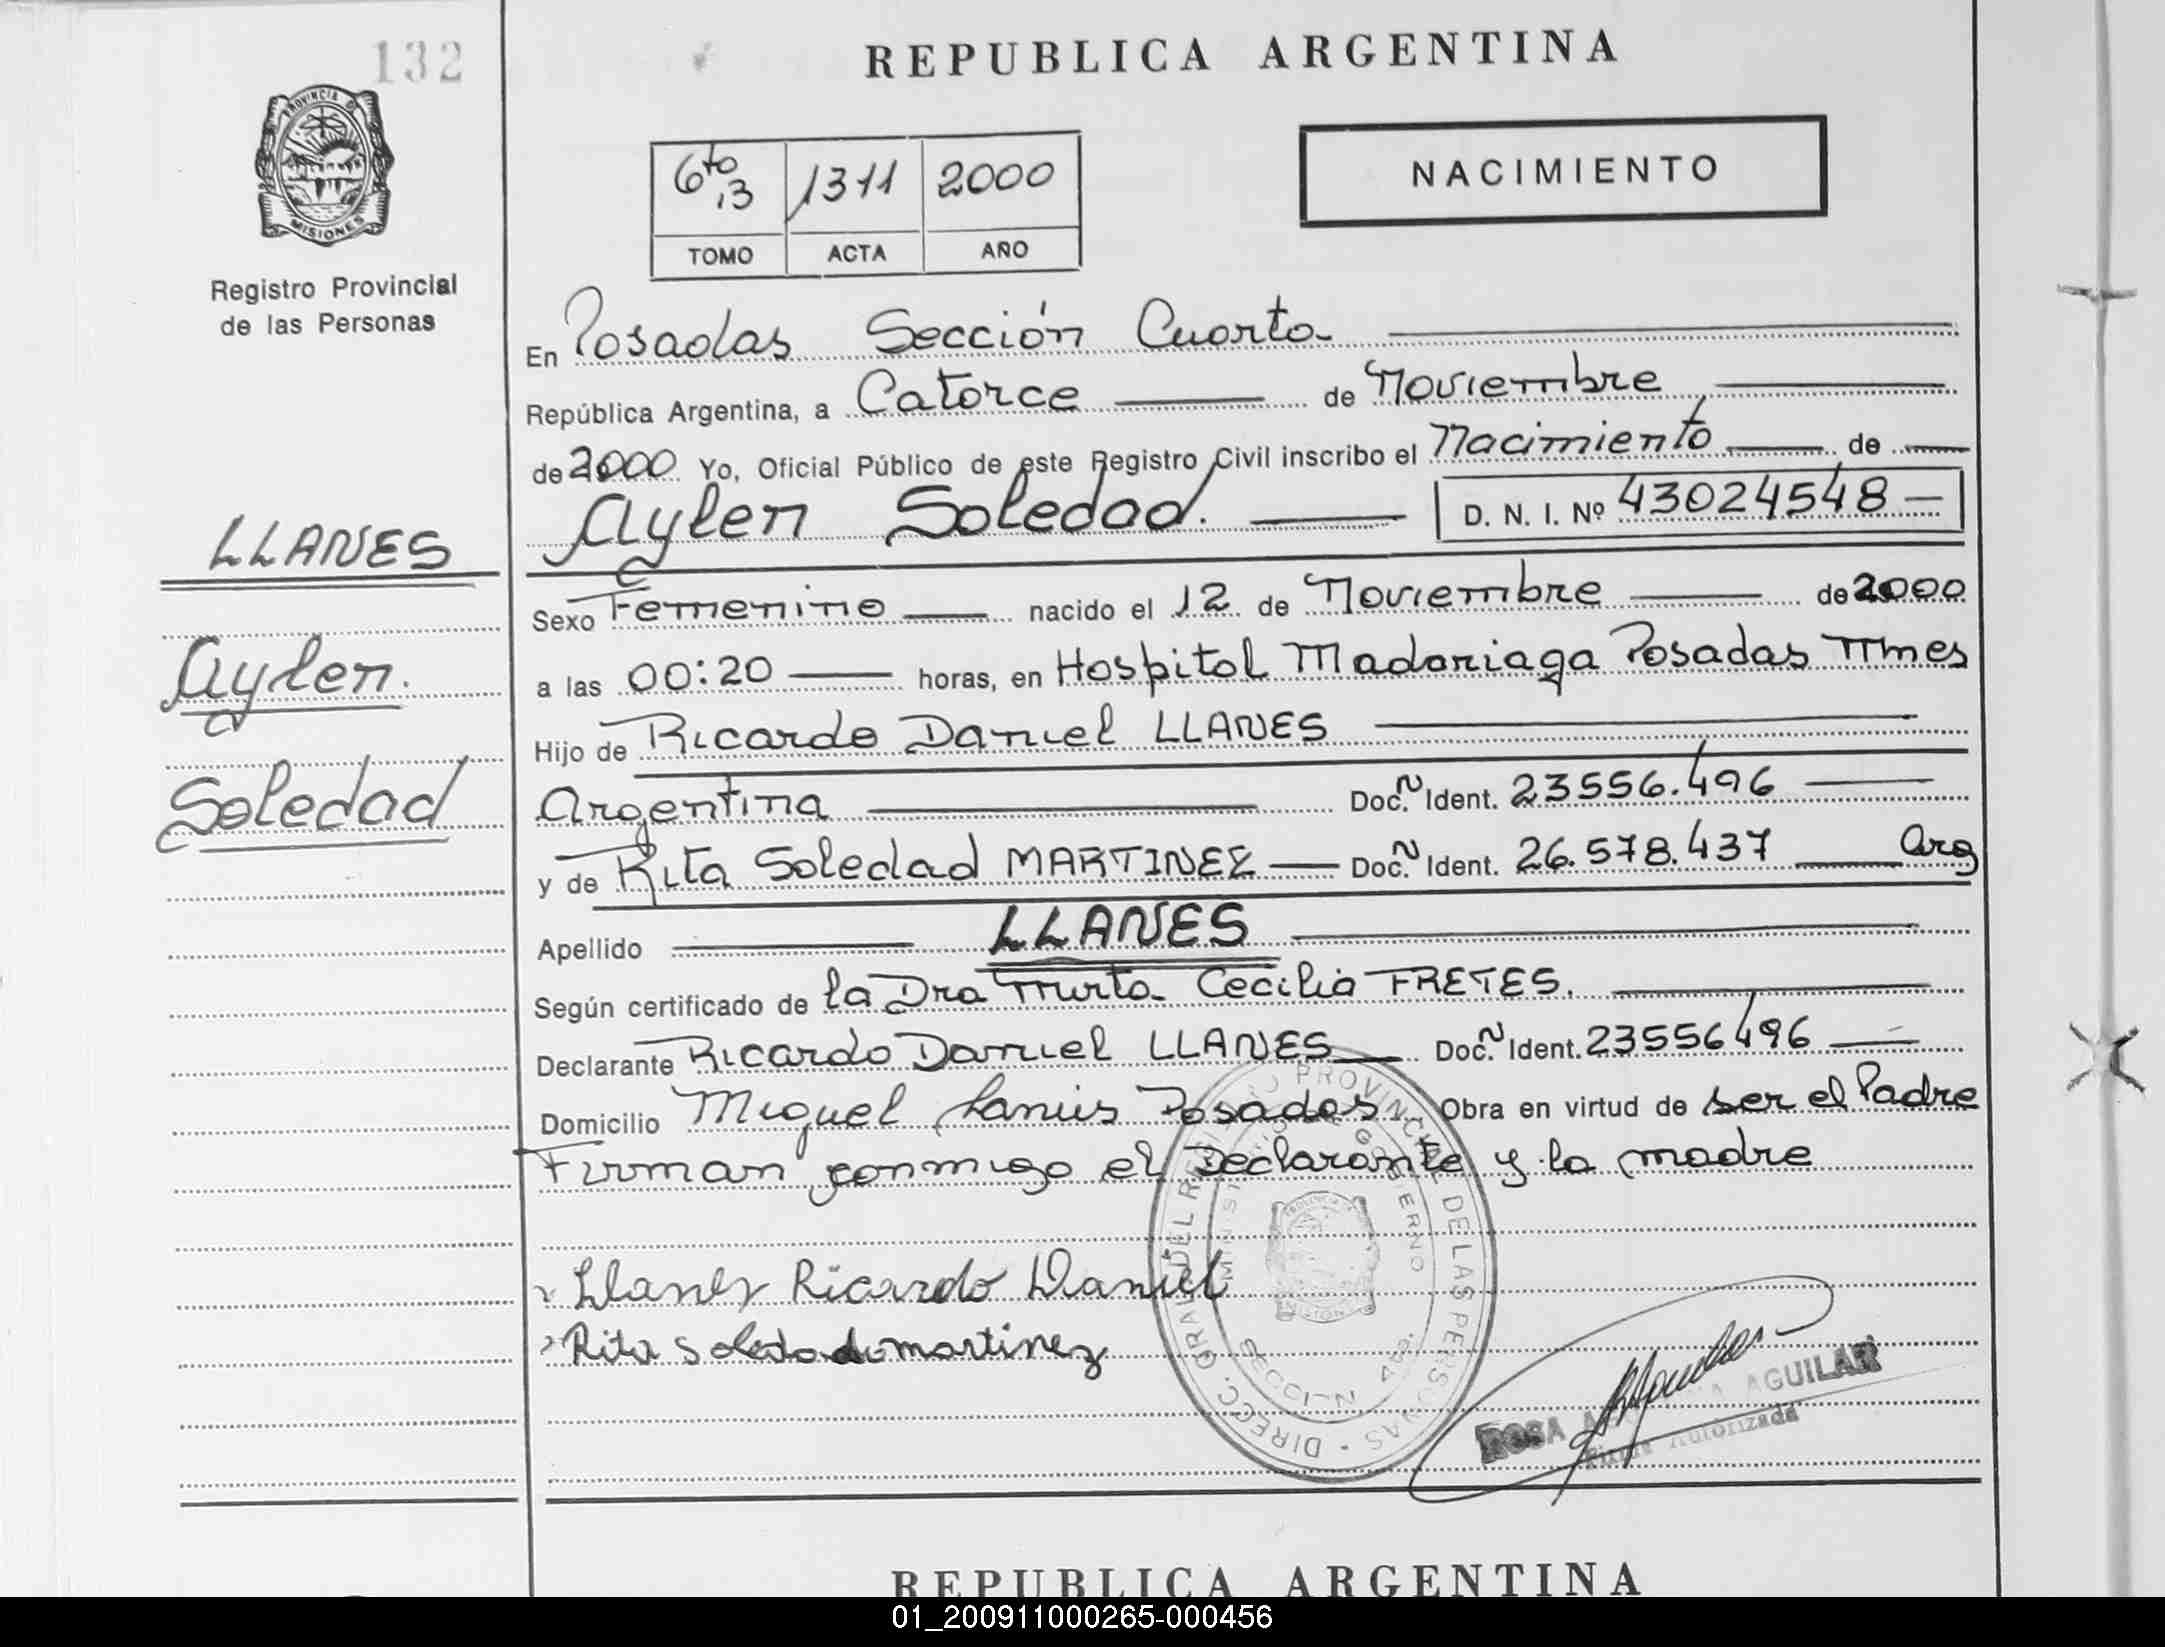 132
REPUBLICA ARGENTINA
PROVINCIA DE
MISIONES
Registro Provincial
de las Personas
6to 13 1311 2000
TOMO ACTA AÑO
NACIMIENTO
En Posadas Sección Cuarta
República Argentina, a Catorce de Noviembre
de 2000 Yo, Oficial Público de este Registro Civil inscribo el Nacimiento de
Aylen Soledad. D. N. I. Nº 43024548
LLANES
Aylen.
Soledad
Sexo Femenino nacido el 12 de Noviembre de 2000
a las 00:20 horas, en Hospital Madariaga Posadas Mnes
Hijo de Ricardo Daniel LLANES
Argentina Doc.N Ident. 23556.496
y de Rita Soledad MARTINEZ Doc.N Ident. 26.578.437 Arg
Apellido LLANES
Según certificado de la Dra Mirta Cecilia FRETES.
Declarante Ricardo Daniel LLANES Doc.N Ident. 23556496
Domicilio Miguel Lanús Posadas Obra en virtud de ser el Padre
Firman conmigo el Declarante y la madre
Llanes Ricardo Daniel
Rita Soledad martinez
DIRECC. GRAL. DEL REGISTRO PROVINCIAL DE LAS PERSONAS
MINISTERIO DE GOBIERNO
SECCION 4ta.
MISIONES
ROSA AGUILAR
Firma Autorizada
REPUBLICA ARGENTINA
01_200911000265-000456